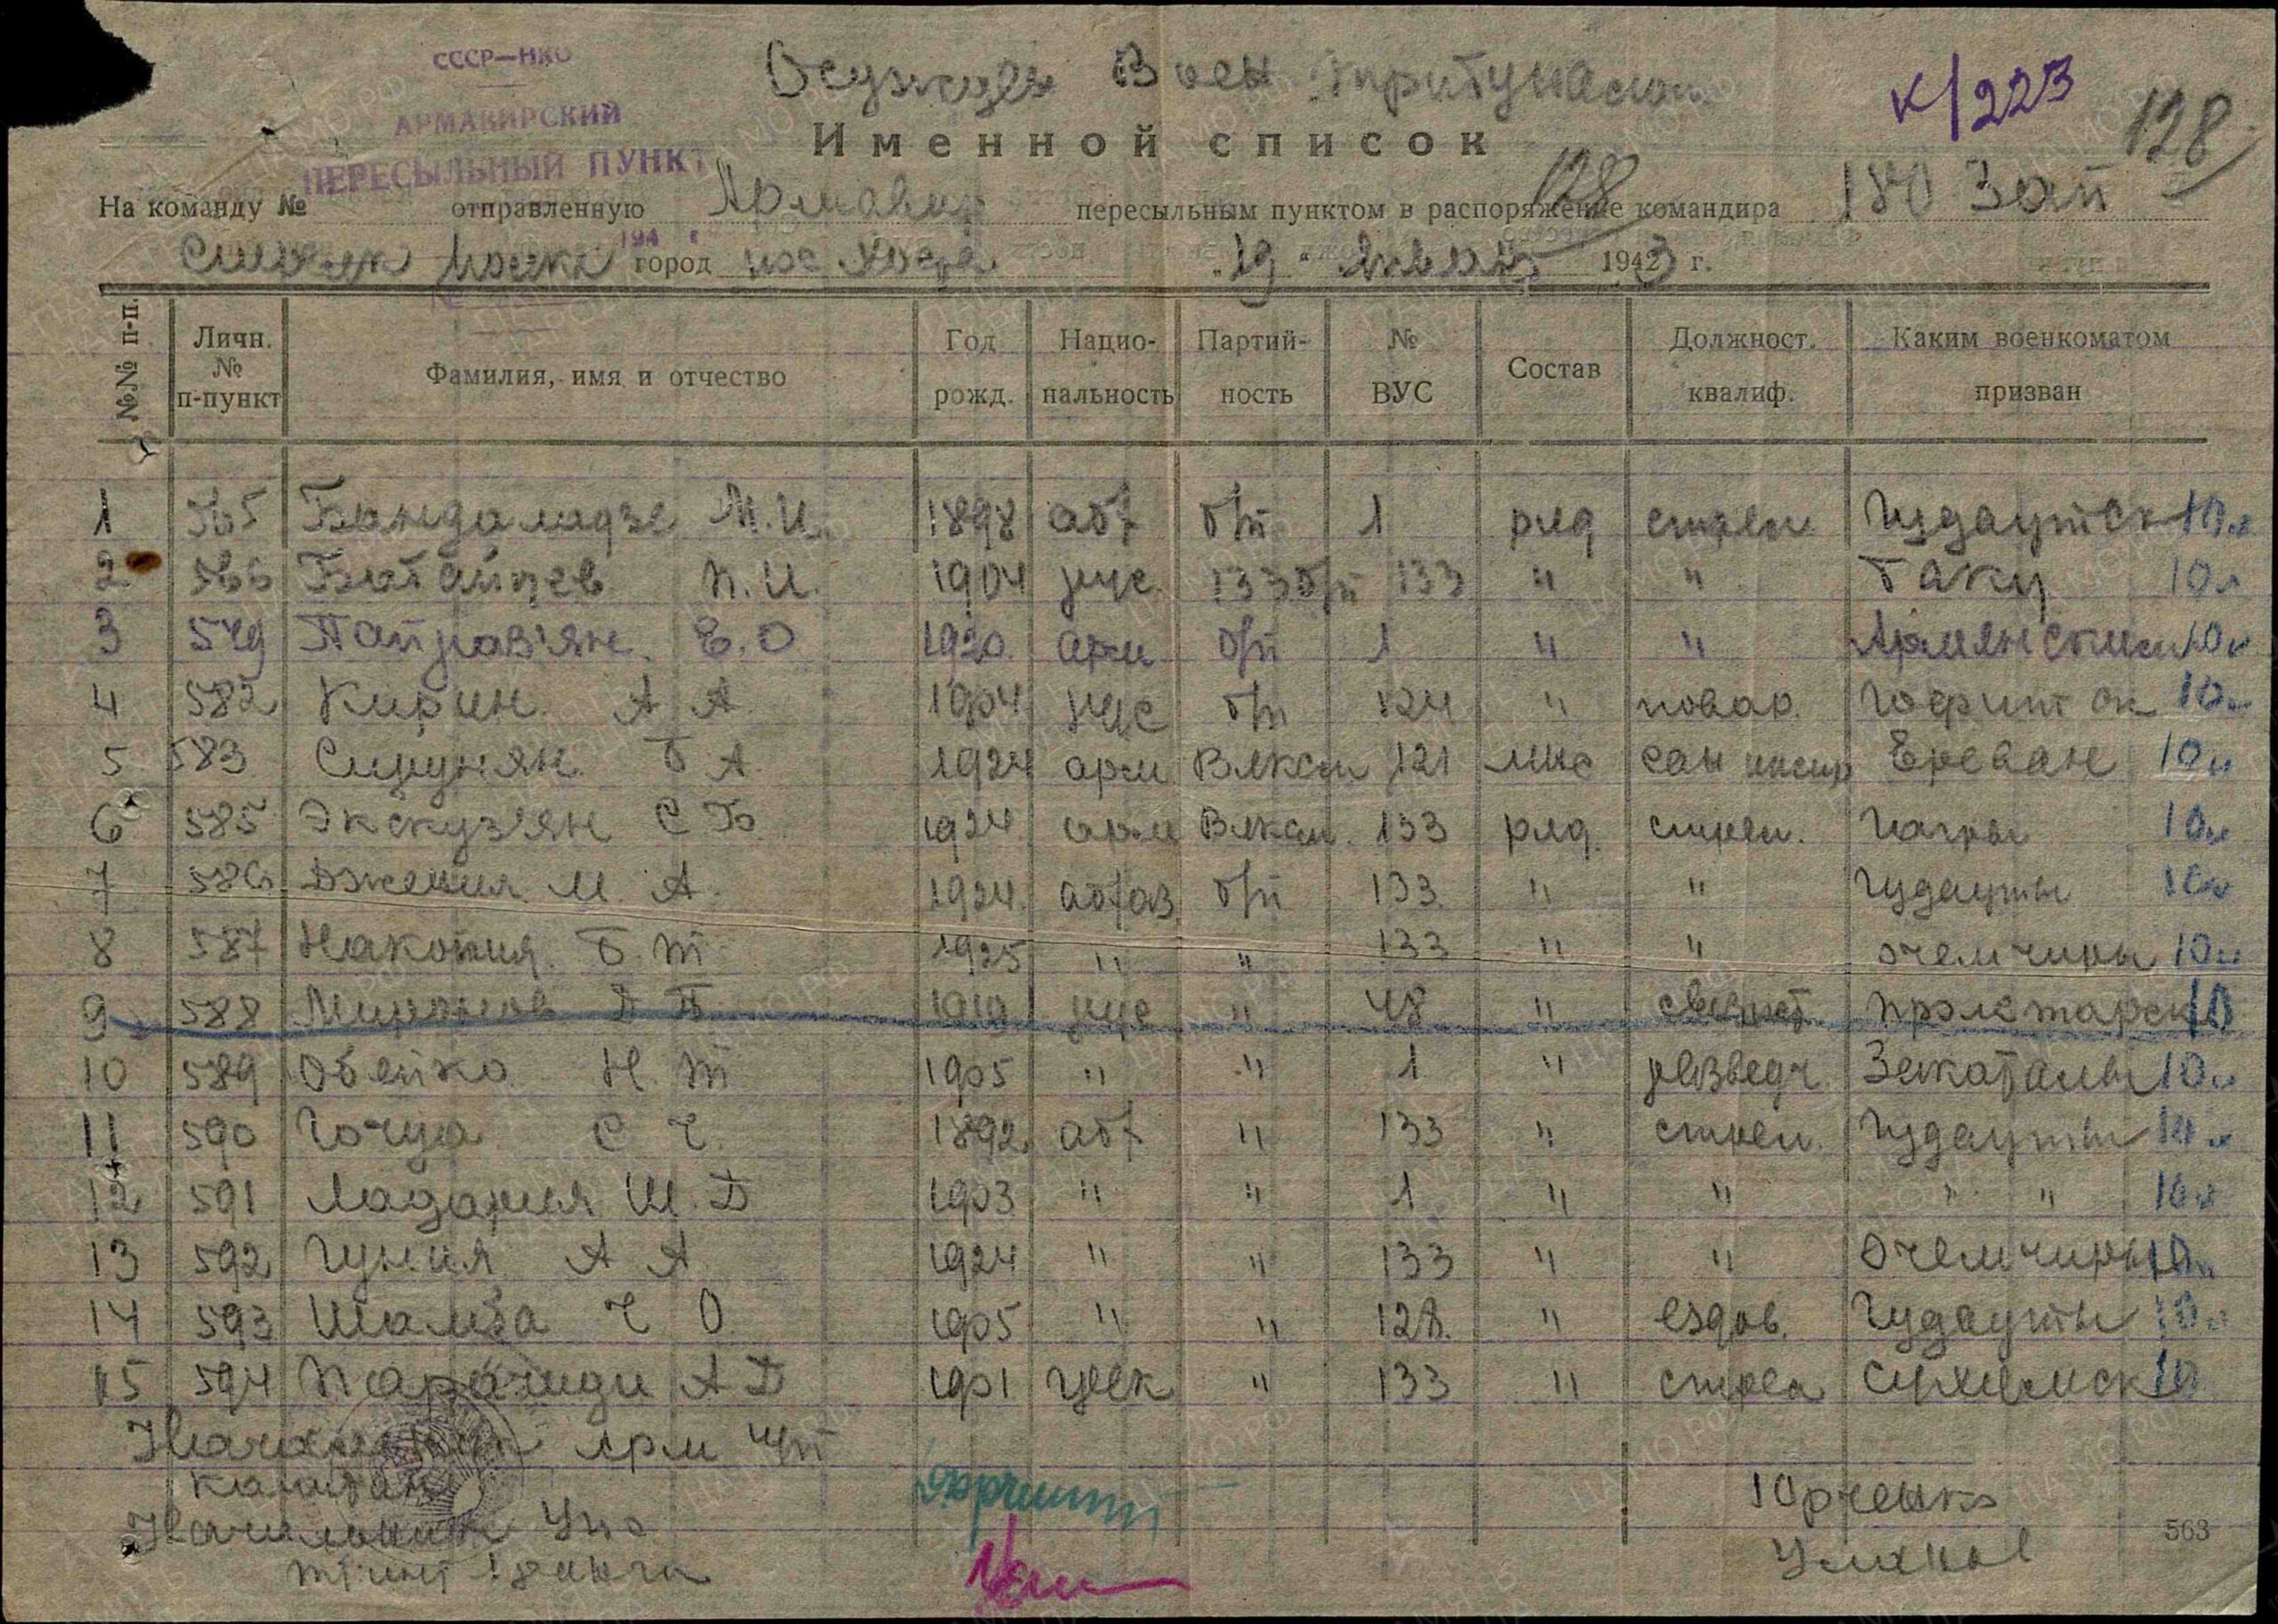 СССР—НКО
АРМАВИРСКИЙ
ПЕРЕСЫЛЬНЫЙ ПУНКТ
Осужден Воен трибуналом
К/223
128
Именной список
128
На команду № отправленную Армавир пересыльным пунктом в распоряжение командира 180 Зап
город пос Хоста „19“ Января 1943 г.
№№ п-п. Личн. № п-пункт Фамилия, имя и отчество Год рожд. Нацио-нальность Партий-ность № ВУС Состав Должност. квалиф. Каким военкоматом призван
1 565 Бандаладзе М.И. 1898 абх б/п 1 ряд стрел Гудаутск 10л
2 566 П.И. 1904 рус 133 б/п 133 " " Баку 10л
3 579 Е.О 1920 арм б/п 1 " " Армянским 10л
4 582 Кирин А А 1904 рус б/п 124 " повар 10л
5 583 Б А. 1924 арм Влксм 121 мнс сан инстр Ереван 10л
6 585 Экскузьян С Б 1924 арм Влксм 133 ряд. стрел. Гагры 10л
7 586 Джения М. А. 1924 абхаз. б/п 133 " " Гудауты 10л
8 587 Накопия Б. Т 1925 " " 133 " " Очемчиры 10л
9 588 Миронов 1919 рус " 48 " связист Пролетарск 10
10 589 Н. Т 1905 " " 1 " разведч. Закаталы 10л
11 590 Гочуа С Ч. 1892 абх " 133 " стрел. Гудауты 10л
12 591 Ладария Ш. Д 1903 " " 1 " " " " 10л
13 592 Гуния А А 1924 " " 133 " " Очемчиры 10л
14 593 Шамба Ч О 1905 " " 128. " ездов. Гудауты 10л
15 594 А Д 1901 грек " 133 " стрел Сухумск 10
Начальник Арм
капитан Юрченко
Начальник
563